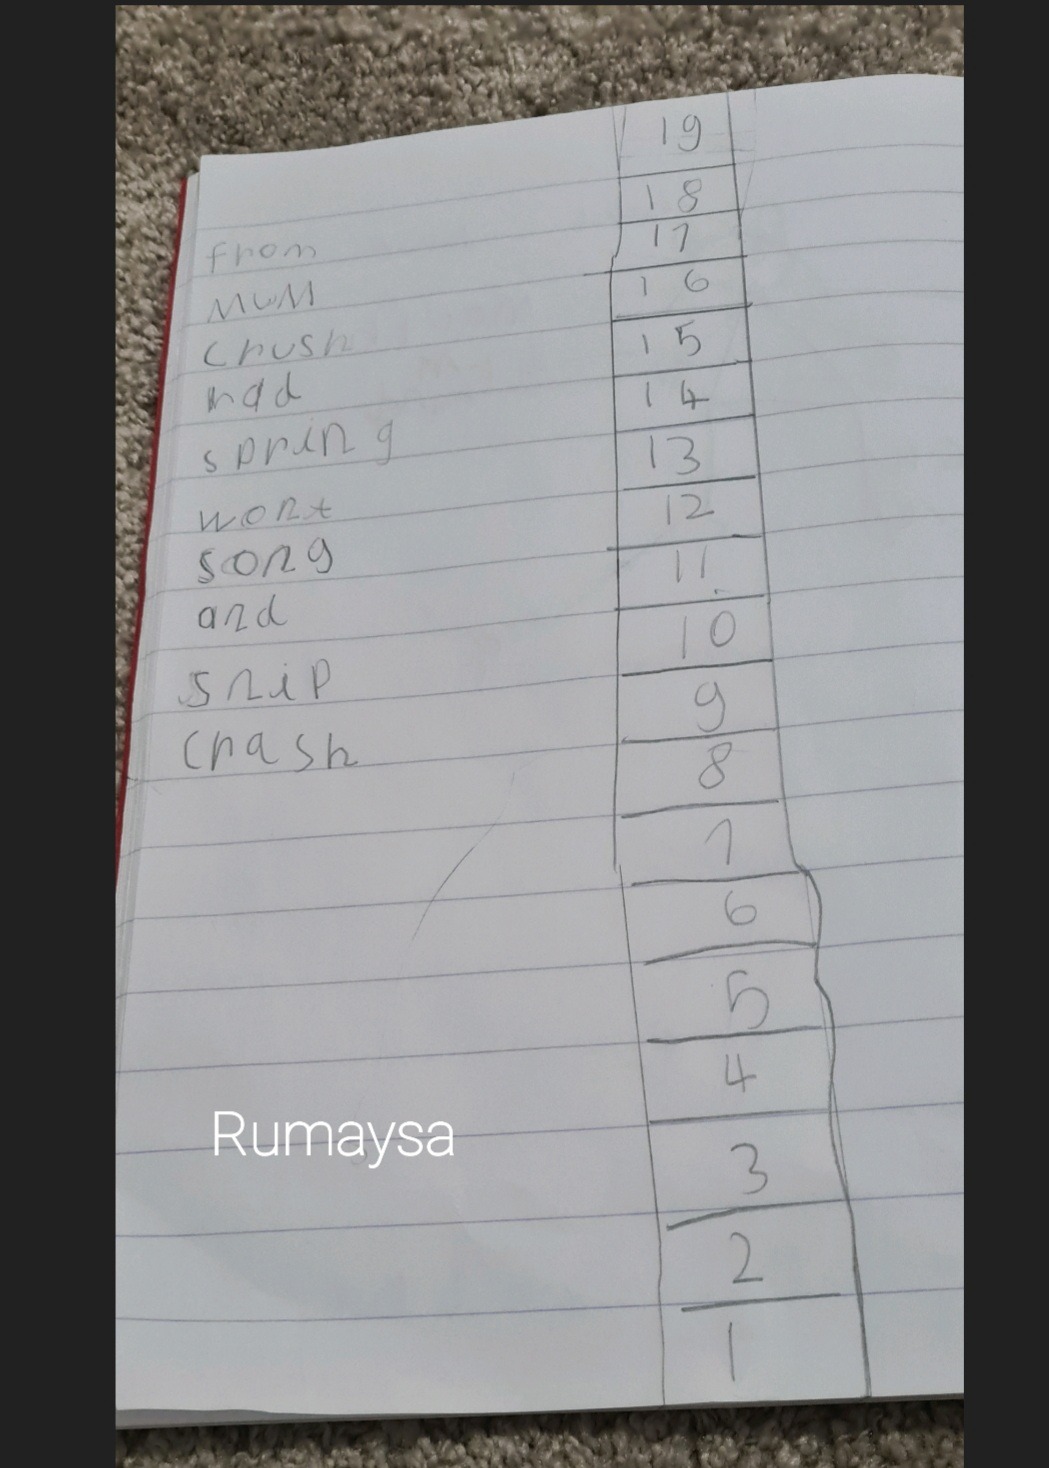 19
18
from 17
mum 16
crush 15
had 14
spring 13
wont 12
song 11
and 10
snip 9
crash 8
7
6
5
4
Rumaysa
3
2
1